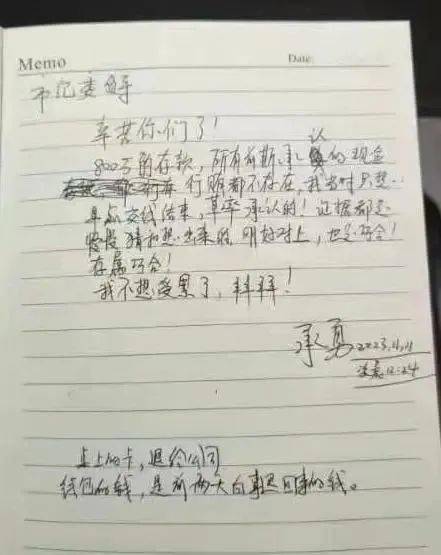 Memo Date:
市纪委领导
辛苦你们了！
800万的存款，所有前期承认的现金
行贿都不存在，我当时只想
早点交线结束，草率承认的！证据都是
慢慢猜和想出来的，刚好对上，也是巧合！
存属巧合！
我不想受累了，拜拜！
承勇 2023.11.11
凌晨12:24
桌上的卡，退给公司
钱包的钱，是前两天自己回来的钱。